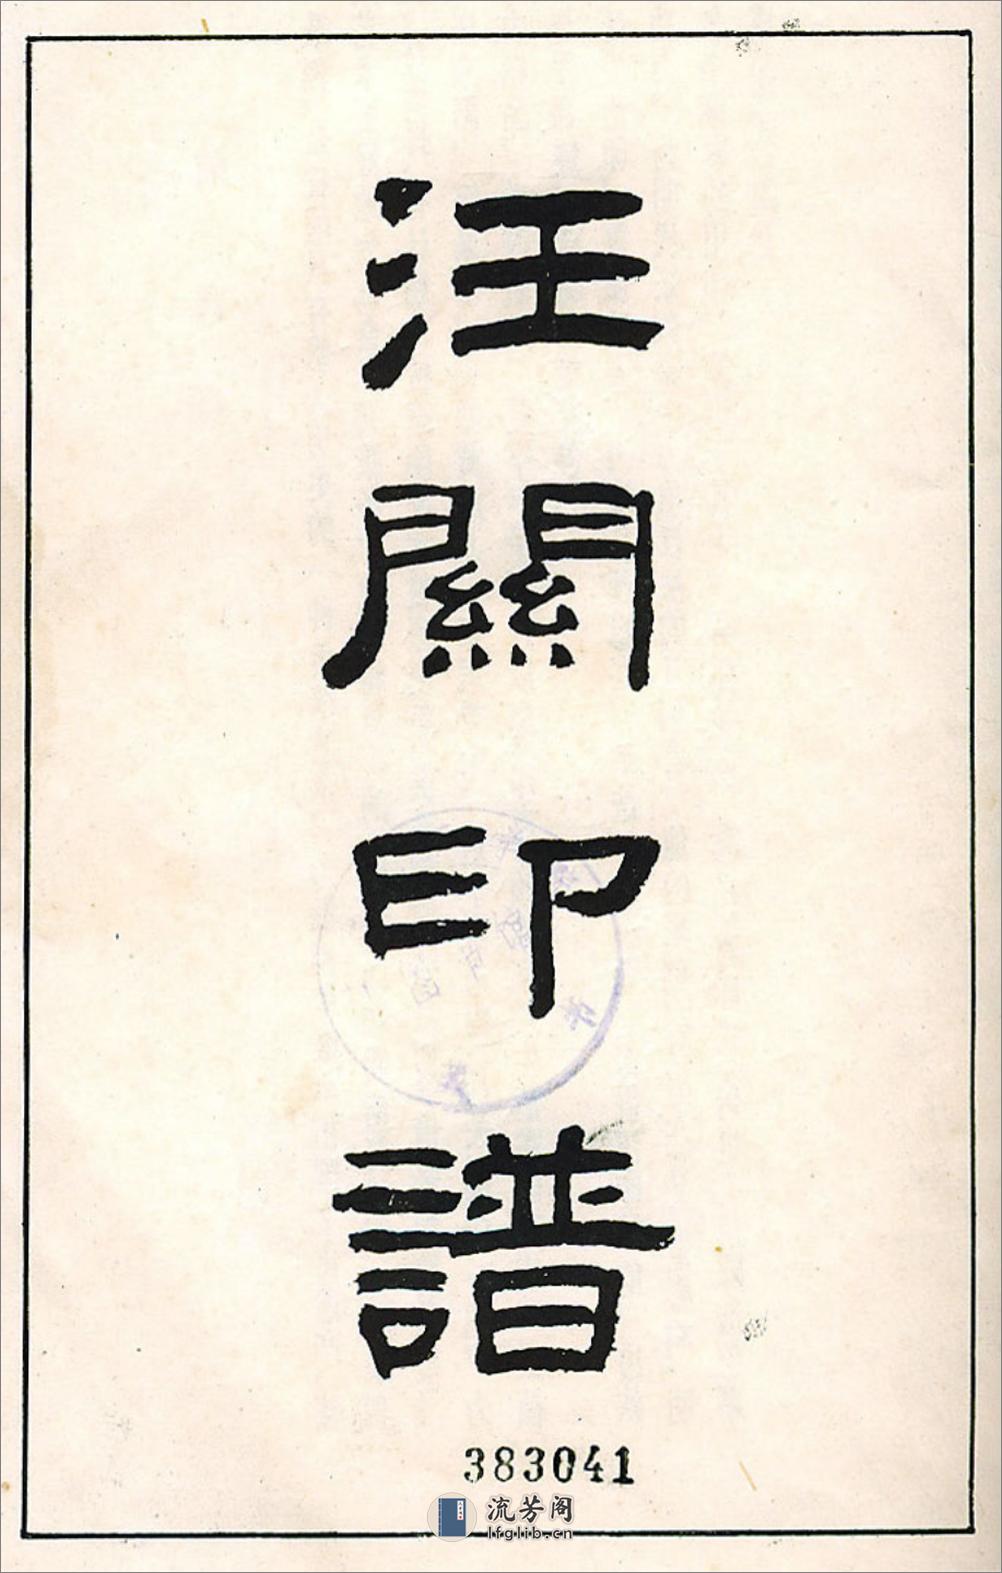 汪關印譜
383041
流芳阁
lfglib.cn